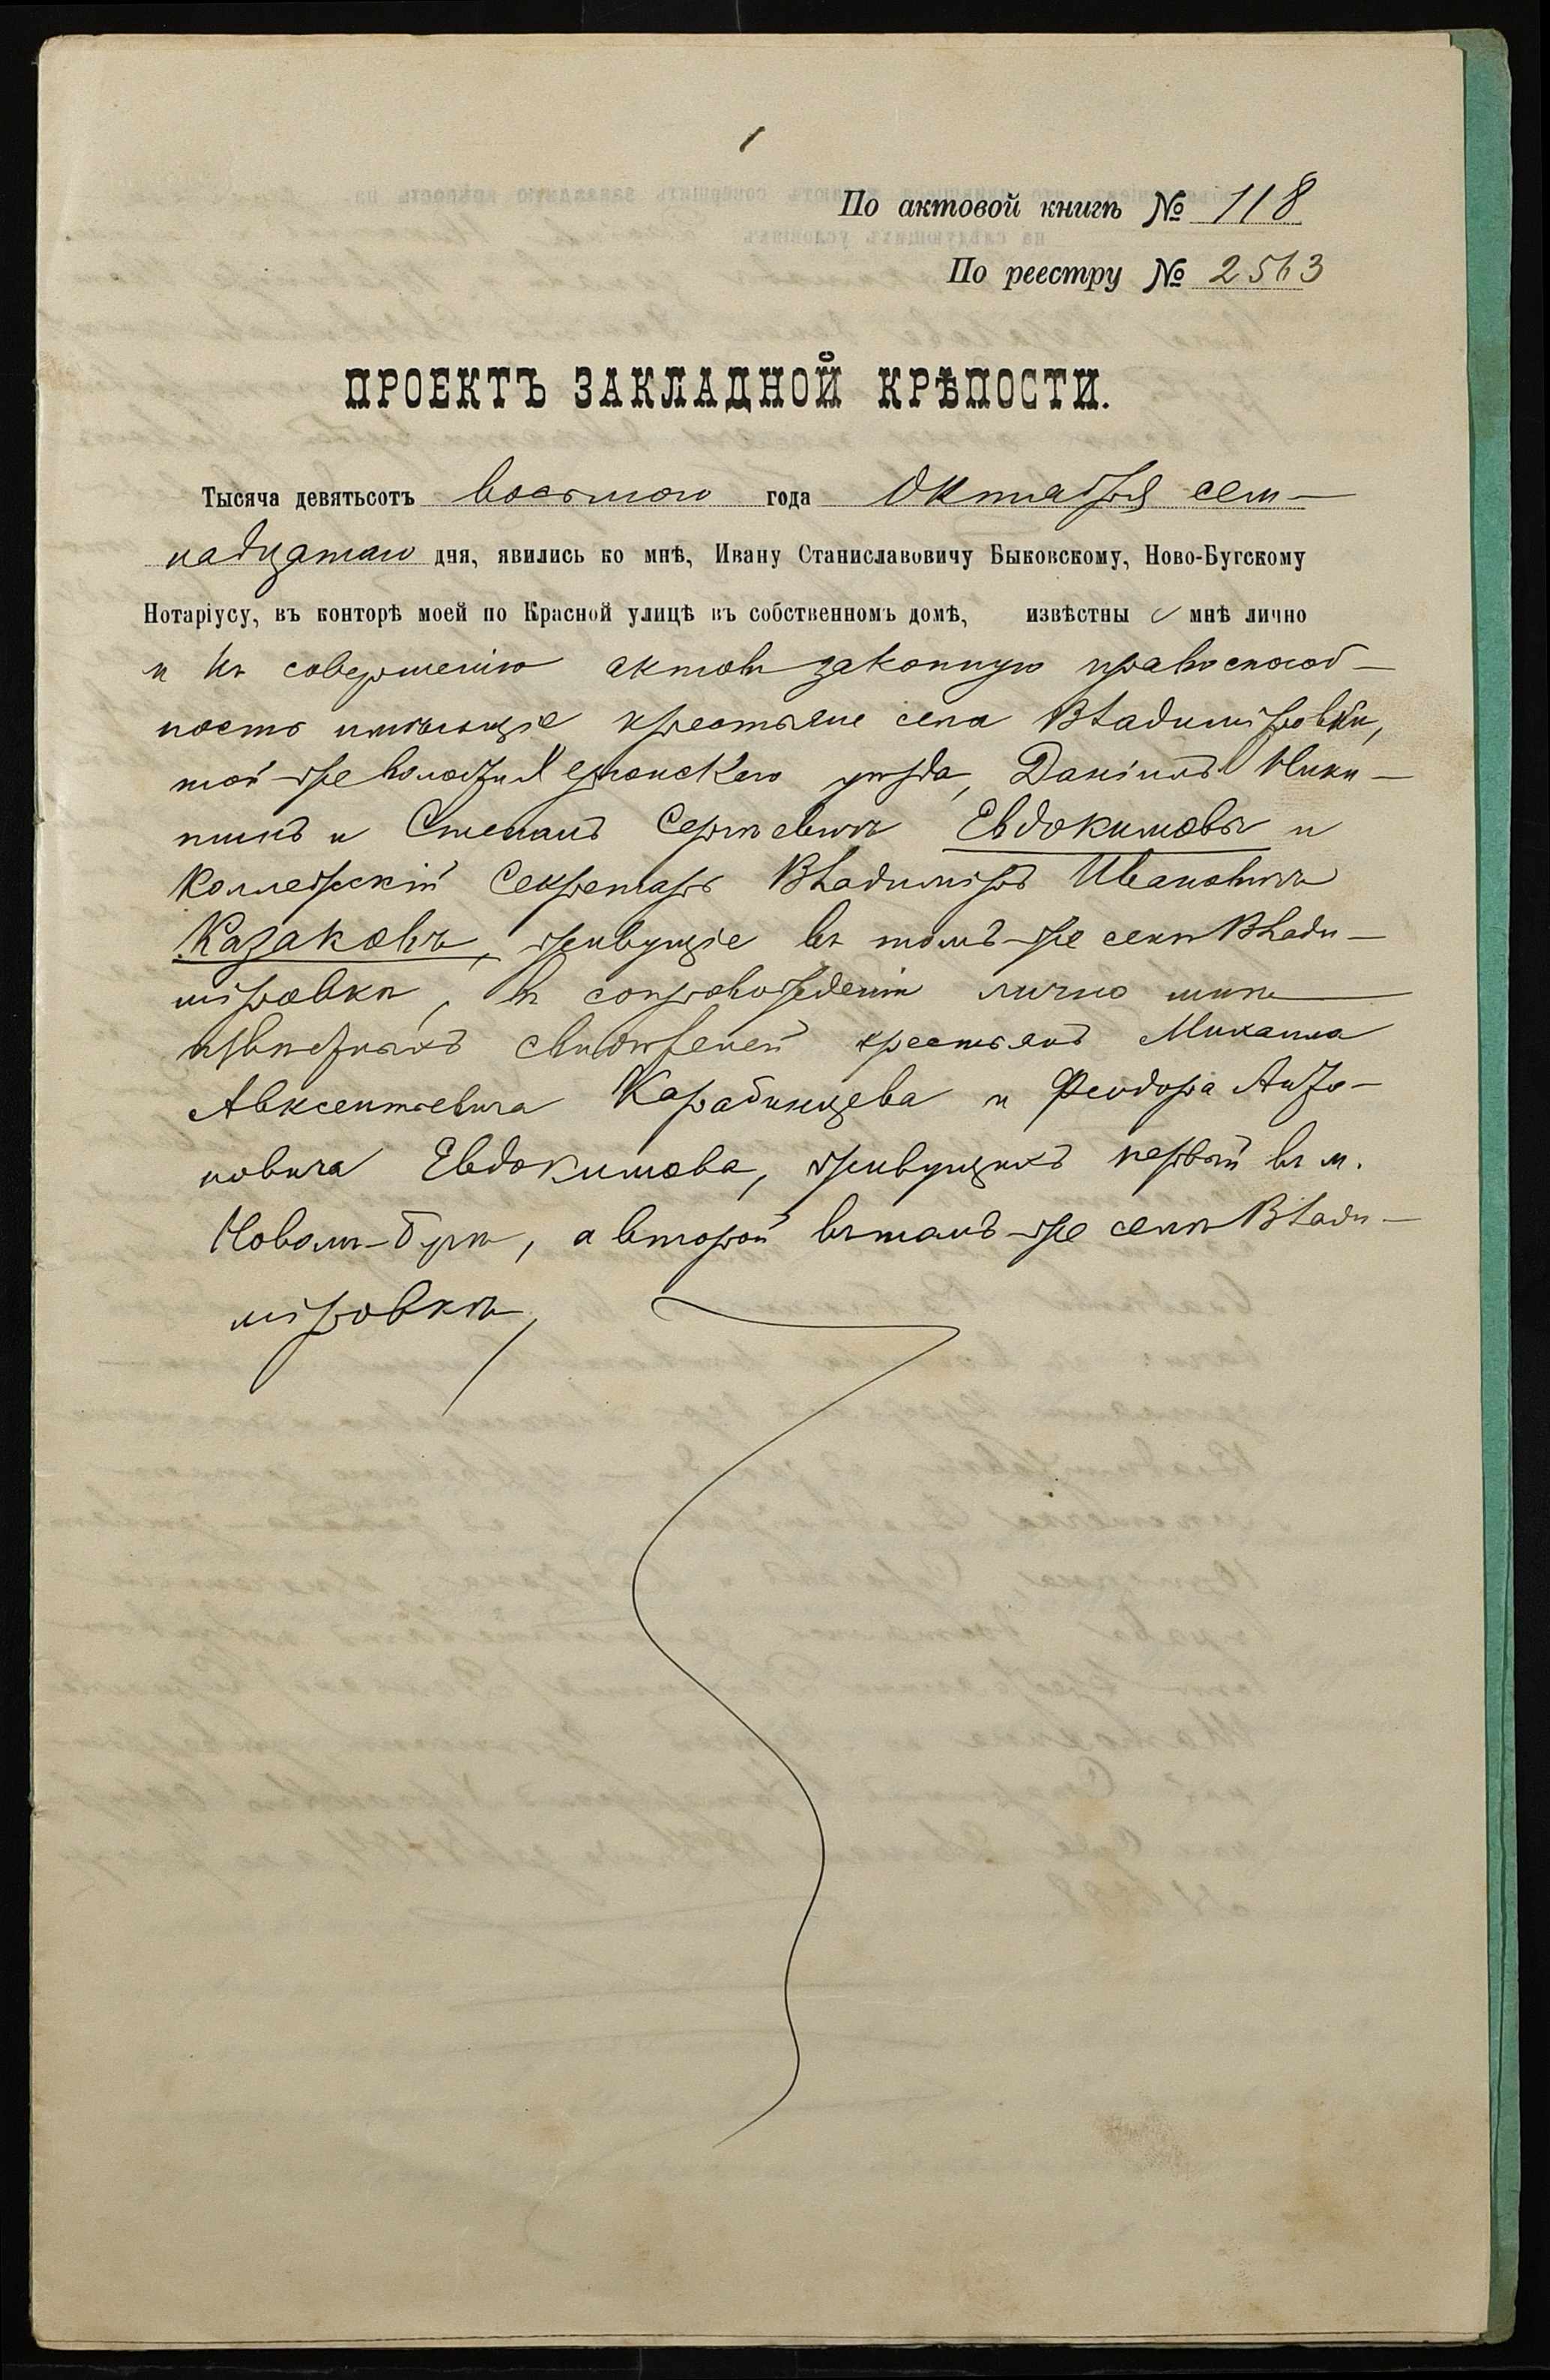 1
По актовой книгѣ № 118
По реестру № 2563
ПРОЕКТЪ ЗАКЛАДНОЙ КРѢПОСТИ.
Тысяча девятьсотъ восьмого года Октября сем-
надцатаго дня, явились ко мнѣ, Ивану Станиславовичу Быковскому, Ново-Бугскому
Нотаріусу, въ конторѣ моей по Красной улицѣ въ собственномъ домѣ, извѣстны е мнѣ лично
и къ совершенію актовъ законную правоспособ-
ность имѣющіе крестьяне села Владиміровки,
той-же волости Херсонскаго уѣзда, Даніилъ Ники-
тинъ и Степанъ Сергѣевичъ Евдокимовы и
Коллежскій Секретарь Владиміръ Ивановичъ
Казаковъ, живущіе въ томъ-же селѣ Влади-
міровкѣ, въ сопровожденіи лично мнѣ
извѣстныхъ свидѣтелей крестьянъ Михаила
Авксентьевича Карабинцева и Феодора
новича Евдокимова, живущихъ первый въ м.
Новомъ-Бугѣ, а второй въ томъ-же селѣ Влади-
міровкѣ,